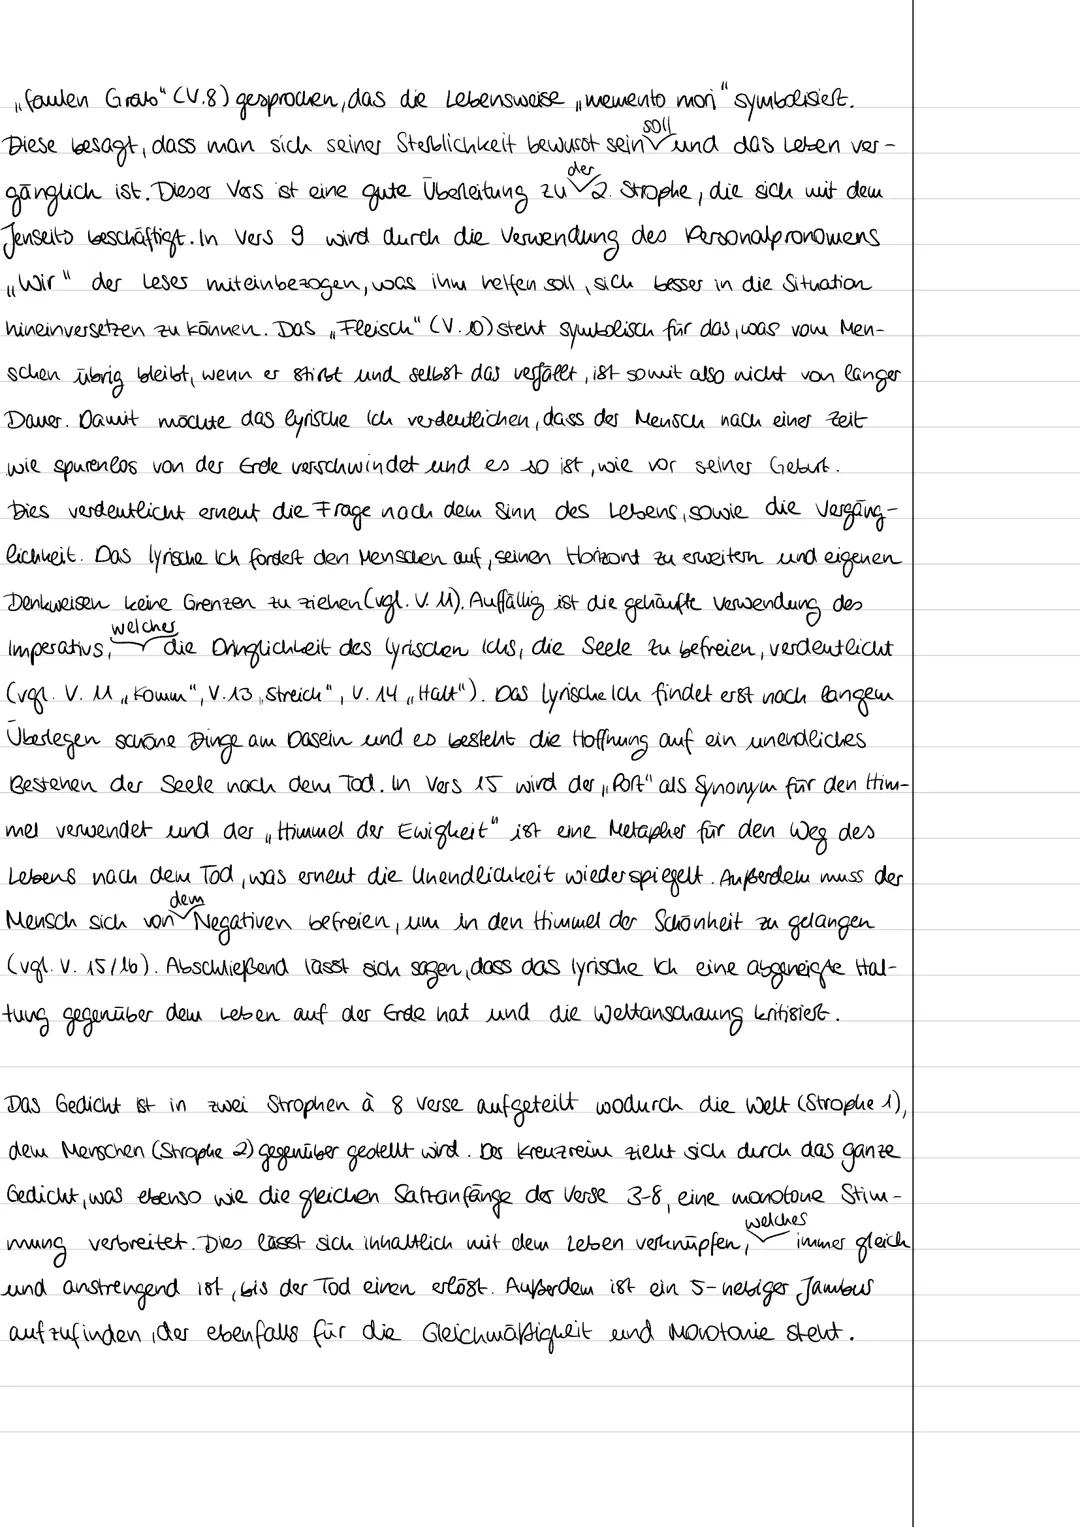 „faulen Grab" (V.8) gesprochen, das die Lebensweise „memento mori" symbolisiert.
Diese besagt, dass man sich seiner Sterblichkeit bewusst sein soll und das Leben ver-
gänglich ist. Dieser Vers ist eine gute Überleitung zu der 2. Strophe, die sich mit dem
Jenseits beschäftigt. In Vers 9 wird durch die Verwendung des Personalpronomens
„Wir" der Leser miteinbezogen, was ihm helfen soll, sich besser in die Situation
hineinversetzen zu können. Das „Fleisch" (V. 10) steht symbolisch für das, was vom Men-
schen übrig bleibt, wenn er stirbt und selbst das verfällt, ist somit also nicht von langer
Dauer. Damit möchte das lyrische Ich verdeutlichen, dass der Mensch nach einer Zeit
wie spurenlos von der Erde verschwindet und es so ist, wie vor seiner Geburt.
Dies verdeutlicht erneut die Frage nach dem Sinn des Lebens, sowie die Vergäng-
lichkeit. Das lyrische Ich fordert den Menschen auf, seinen Horizont zu erweitern und eigenen
Denkweisen keine Grenzen zu ziehen (vgl. V. 11). Auffällig ist die gehäufte Verwendung des
Imperativs, welches die Dringlichkeit des lyrischen Ichs, die Seele zu befreien, verdeutlicht
(vgl. V. 11 „Komm", V.13 „Streich", V. 14 „Halt"). Das lyrische Ich findet erst nach langem
Überlegen schöne Dinge am Dasein und es besteht die Hoffnung auf ein unendliches
Bestehen der Seele nach dem Tod. In Vers 15 wird der „Port" als Synonym für den Him-
mel verwendet und der „Himmel der Ewigkeit" ist eine Metapher für den Weg des
Lebens nach dem Tod, was erneut die Unendlichkeit wiederspiegelt. Außerdem muss der
Mensch sich von dem Negativen befreien, um in den Himmel der Schönheit zu gelangen
(vgl. V. 15/16). Abschließend lässt sich sagen, dass das lyrische Ich eine abgeneigte Hal-
tung gegenüber dem Leben auf der Erde hat und die Weltanschaung kritisiert.
Das Gedicht ist in zwei Strophen à 8 Verse aufgeteilt wodurch die Welt (Strophe 1),
dem Menschen (Strophe 2) gegenüber gestellt wird. Der Kreuzreim zieht sich durch das ganze
Gedicht, was ebenso wie die gleichen Satzanfänge der Verse 3-8, eine monotone Stim-
mung verbreitet. Dies lässt sich inhaltlich mit dem Leben verknüpfen, welches immer gleich
und anstrengend ist, bis der Tod einen erlöst. Außerdem ist ein 5-hebiger Jambus
aufzufinden, der ebenfalls für die Gleichmäßigkeit und Monotonie steht.